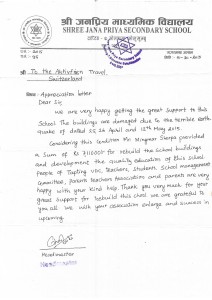 श्री जनप्रिय माध्यमिक विद्यालय
SHREE JANA PRIYA SECONDARY SCHOOL
To the Aktivferien Travel,
Switzerland
Subject:- Appreciation letter
Dear Sir
We are very happy getting the great support to this
School The buildings are damaged due to the terrible earth
quake of dated 25, 26 April and 12th May 2015.
Considering this condition Mr. Sherpa provided
a Sum of Rs for rebuild the School buildings
and development the quality education of this school
People of Tapting VDC, Teachers, Students, School management
Committee, Parents Teachers Association and parents are very
happy with your kind help. Thank you very much for your
great Support for rebuild this school. We are grateful to
you all. We with your association enlarge and success in
upcoming.
Headmaster